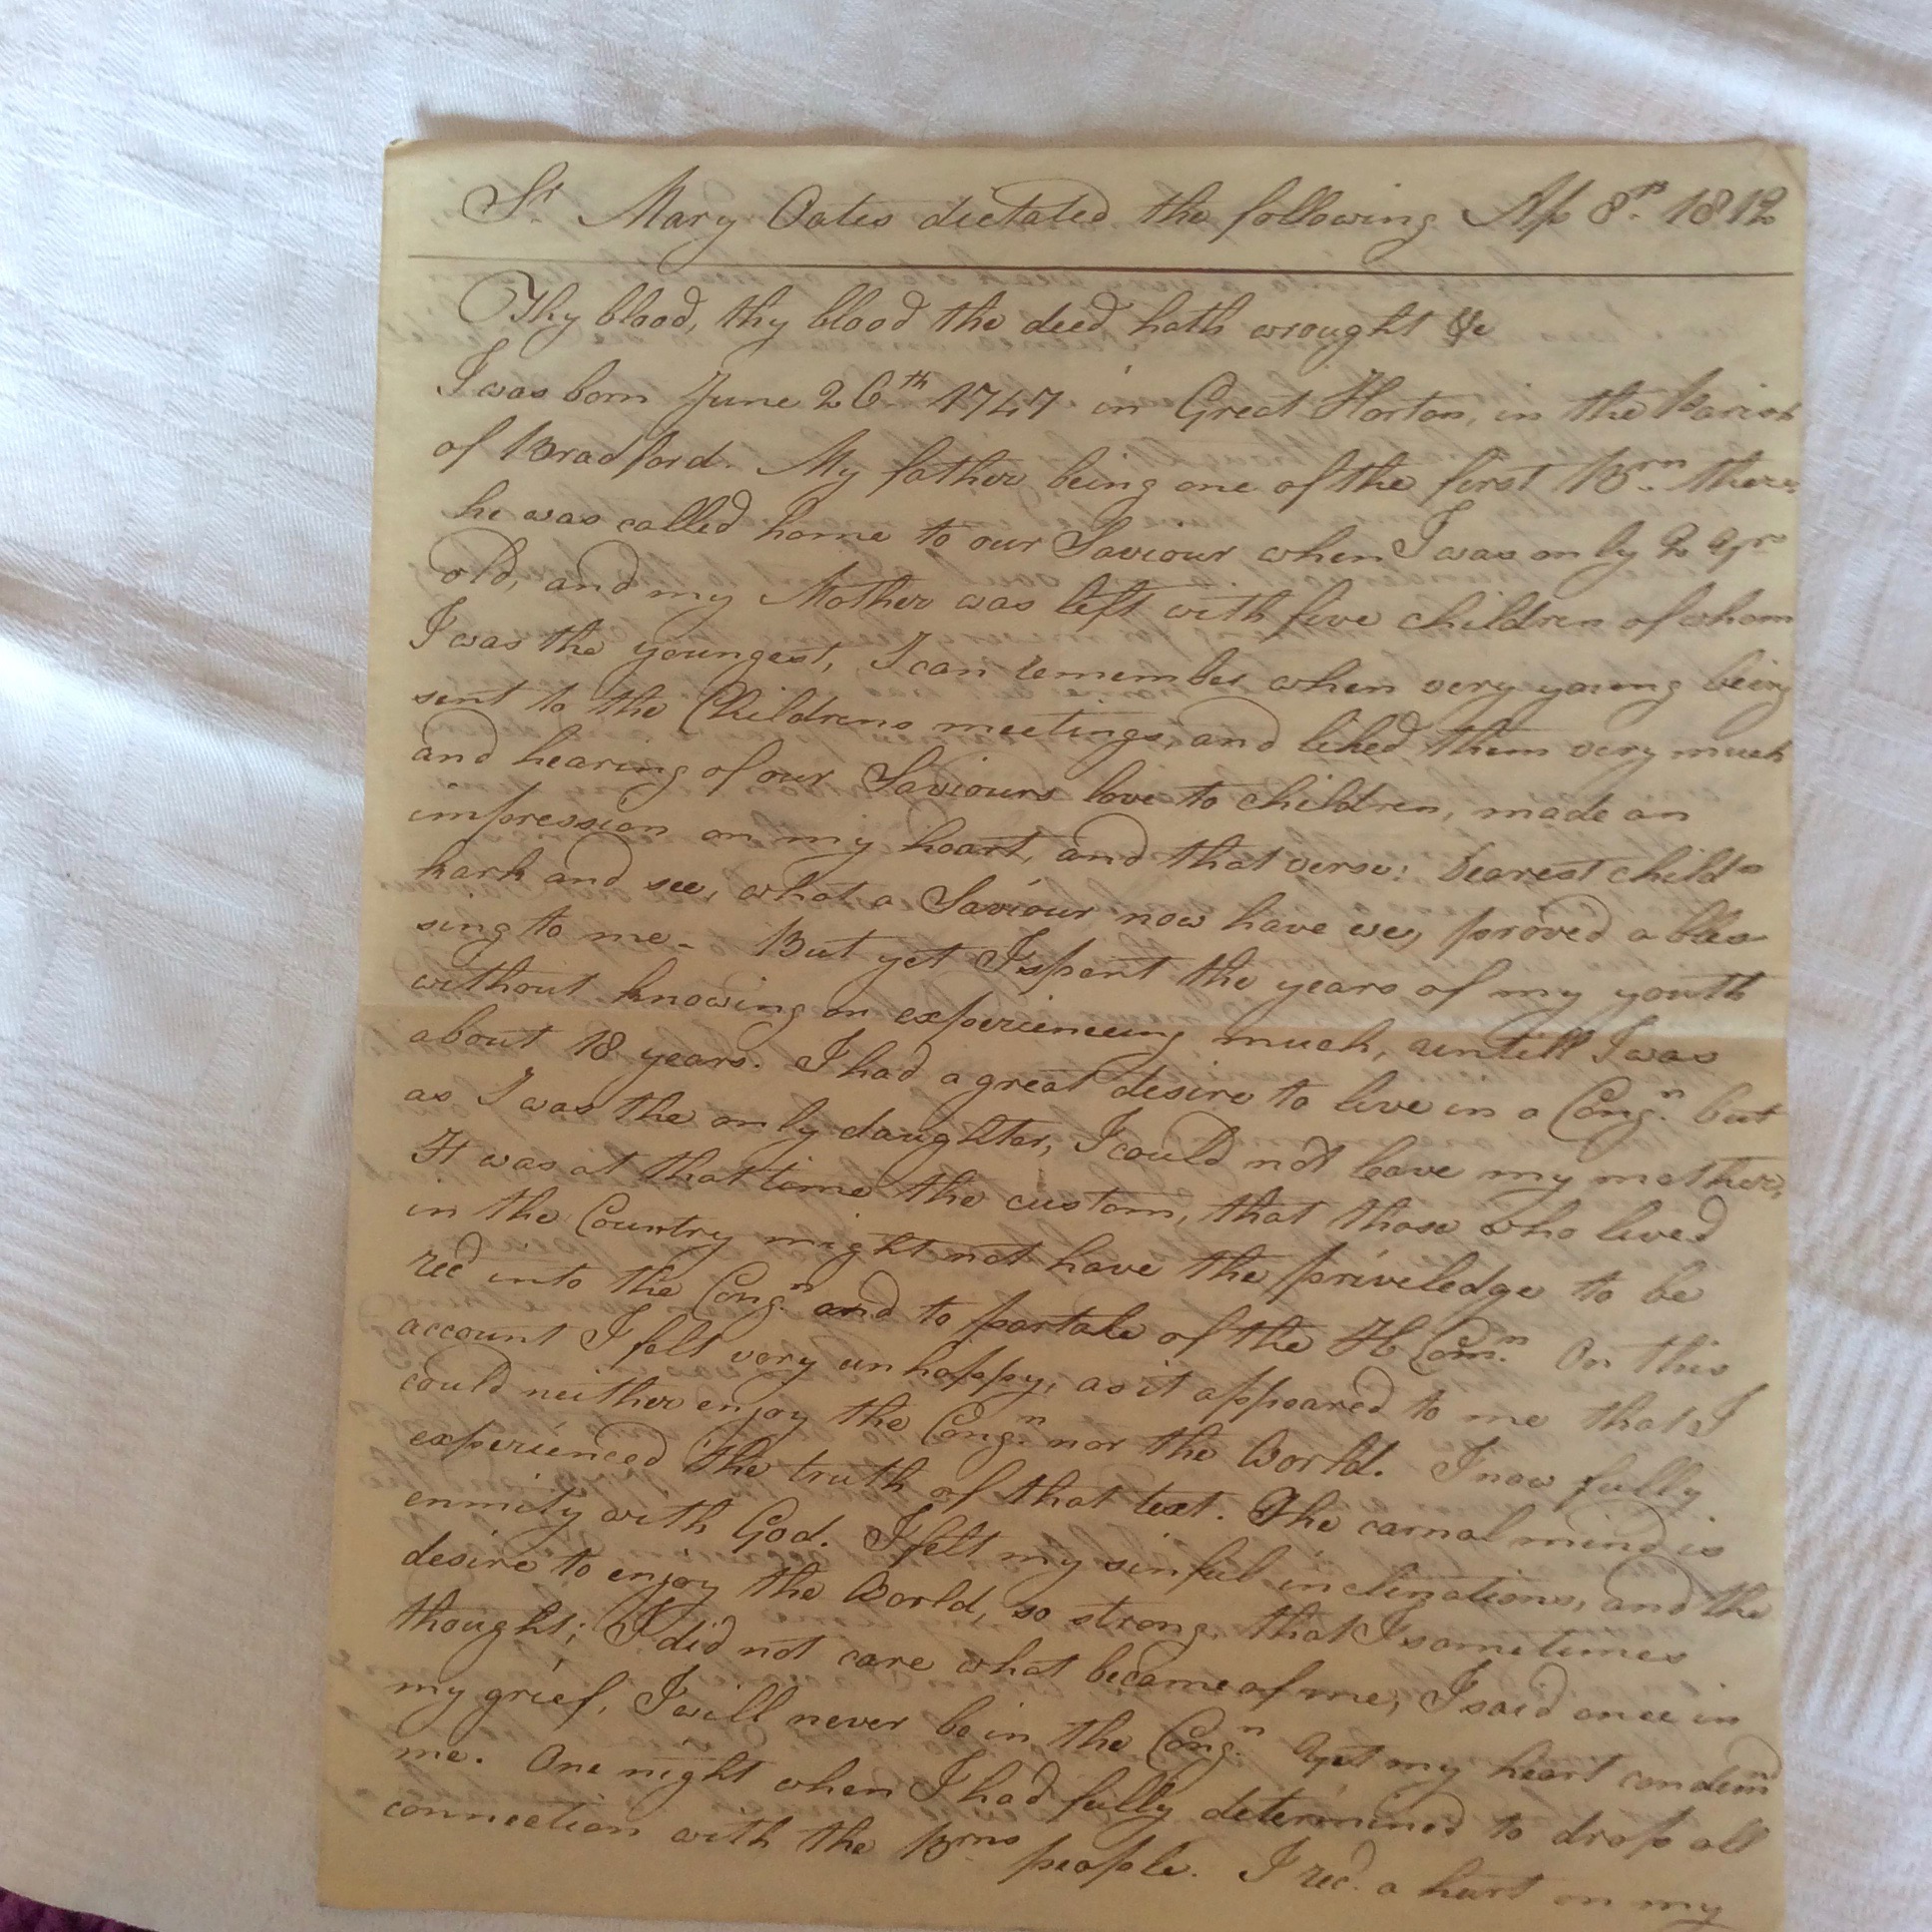 Sr Mary Oates dictated the following Ap 8th 1812
Thy blood, thy blood the deed hath wrought &c
I was born June 26th 1747 in Great Horton, in the Parish
of Bradford. My father being one of the first Brn there
he was called home to our Saviour when I was only 2 yrs
old, and my Mother was left with five children of whom
I was the youngest, I can remember when very young being
sent to the Childrens meetings, and liked them very much
and hearing of our Saviours love to children, made an
impression on my heart, and that verse: Dearest childn
hark and see, what a Saviour now have we, proved a bles-
sing to me - But yet I spent the years of my youth
without knowing or experiencing much, untill I was
about 18 years. I had a great desire to live in a Congn. but
as I was the only daughter, I could not leave my mother,
It was at that time the custom, that those who lived
in the Country might not have the priviledge to be
recd into the Congn. and to partake of the H Comn. On this
account I felt very unhappy, as it appeared to me that I
could neither enjoy the Congn. nor the World. I now fully
experienced the truth of that text. The carnal mind is
enmity with God. I felt my sinful inclinations, and the
desire to enjoy the World, so strong, that I sometimes
thought; I did not care what became of me, I said once in
my grief, I will never be in the Congn. yet my heart condemd
me. One night when I had fully determined to drop all
connection with the Brns people. I recd. a hurt on my